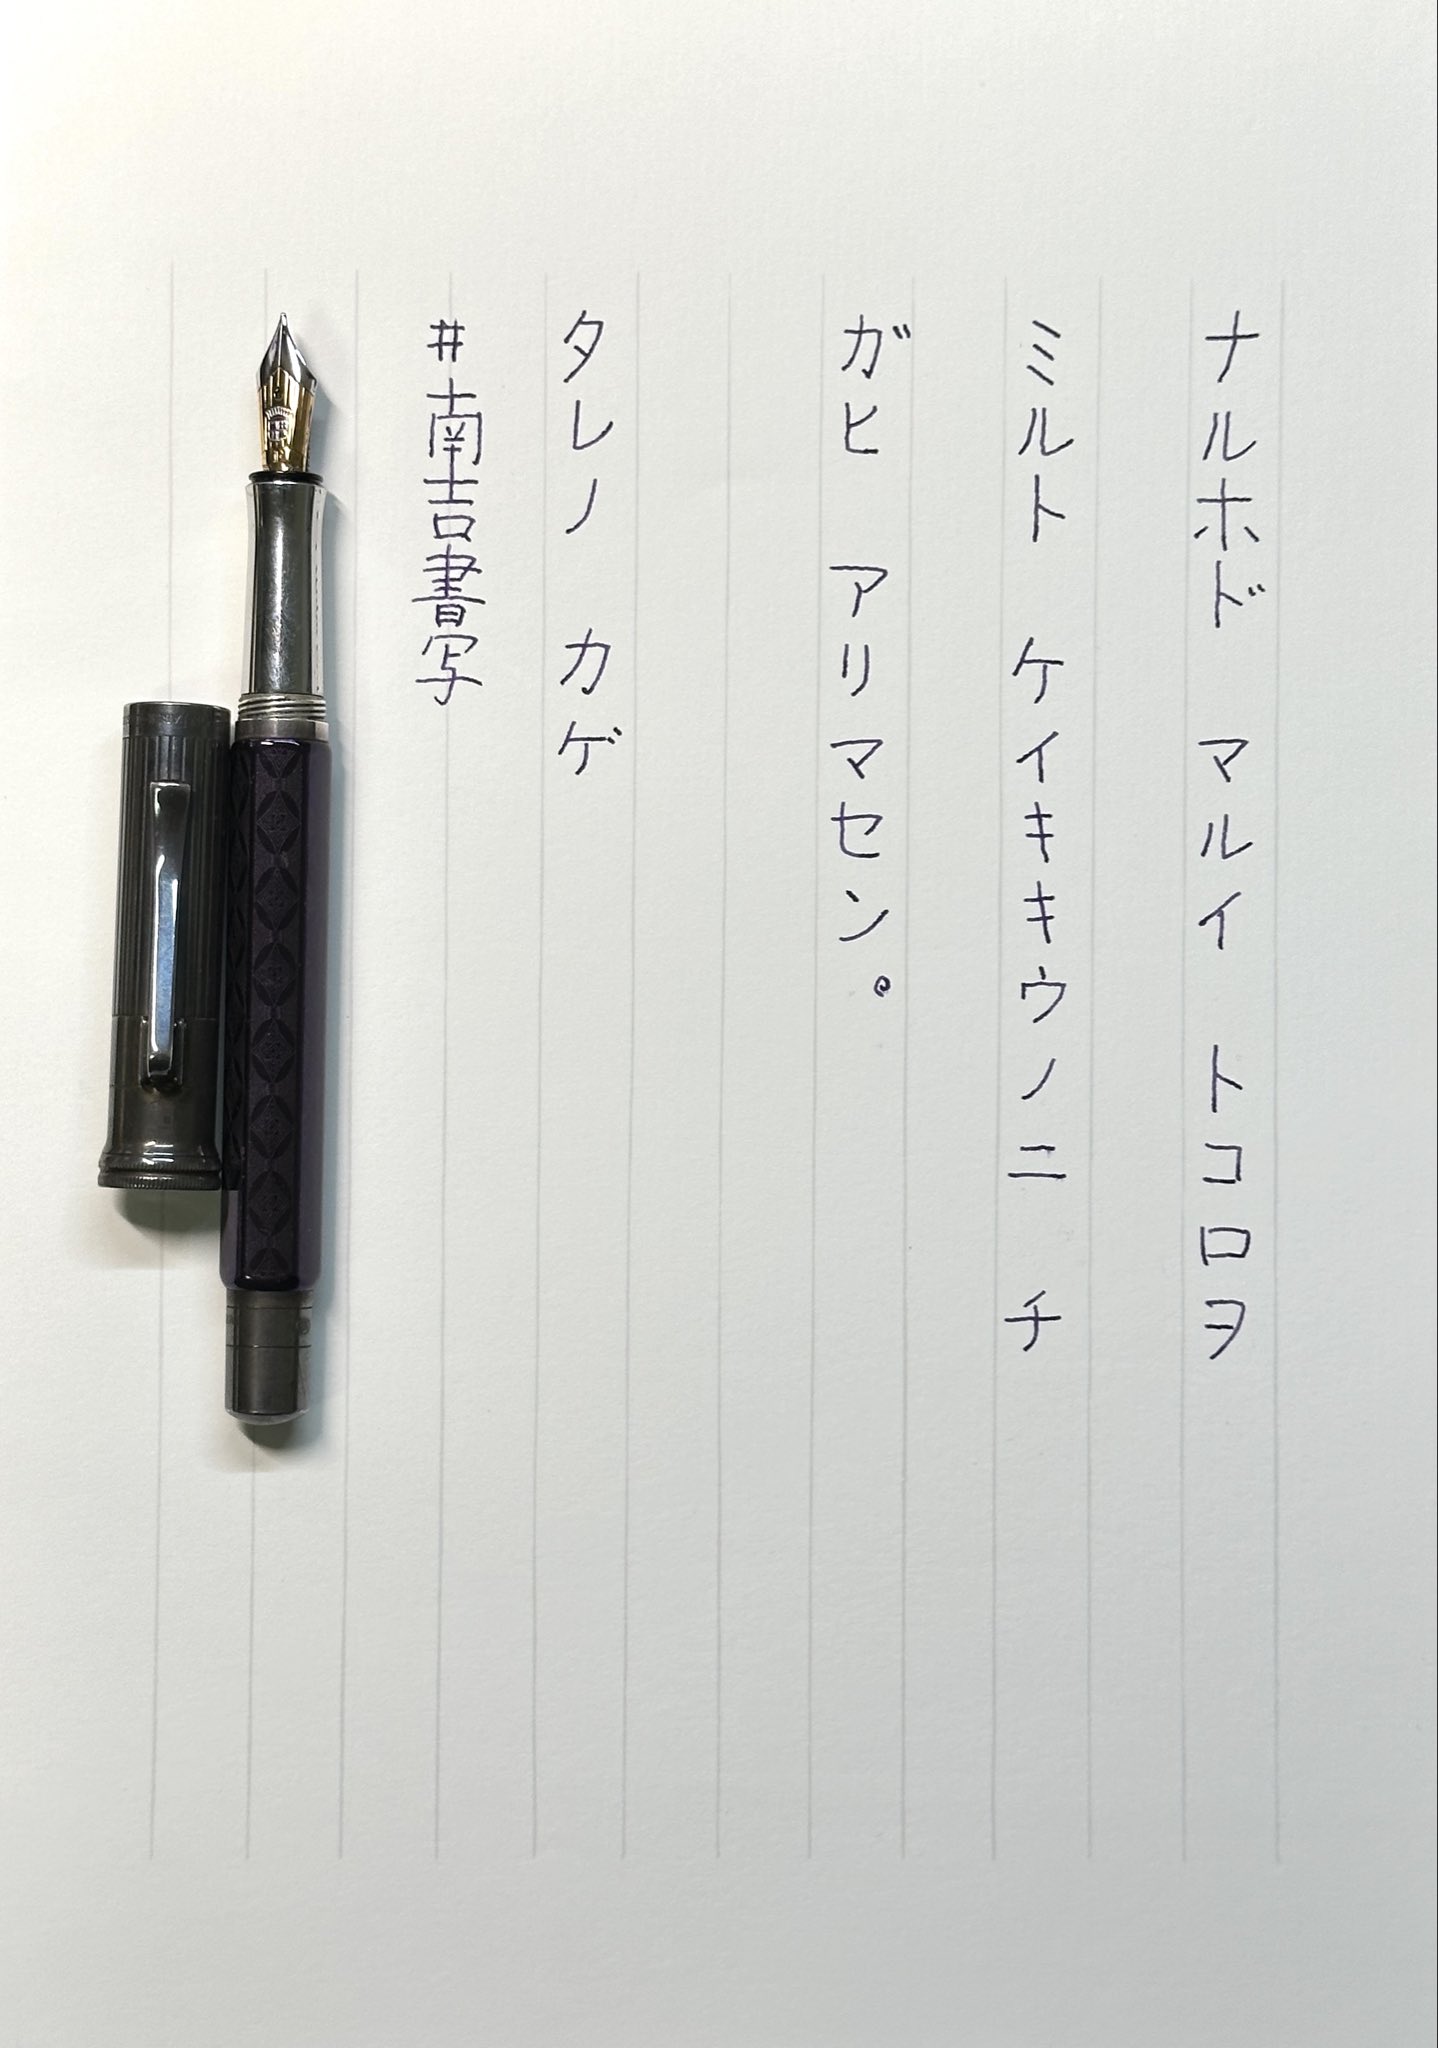 ナルホド　マルイ　トコロヲ
ミルト　ケイキキウノニ　チ
ガヒ　アリマセン。
タレノ　カゲ
#南吉書写